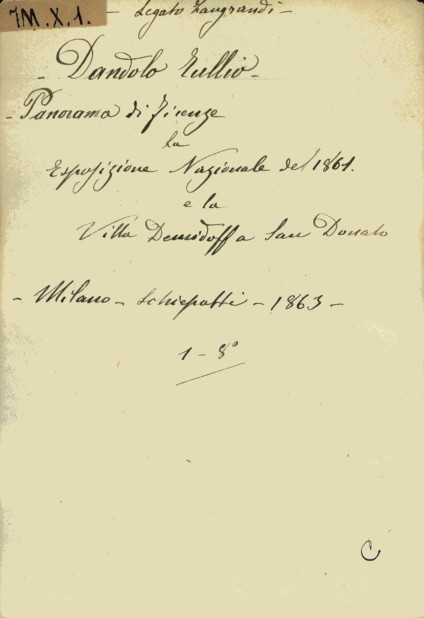 IM.X.1.
- Legato Zangrandi -
- Dandolo Tullio -
- Panorama di Firenze
la
Esposizione Nazionale del 1861.
e la
Villa Demidoff a San Donato
- Milano - Schiepatti - 1863 -
1 - 8°
C